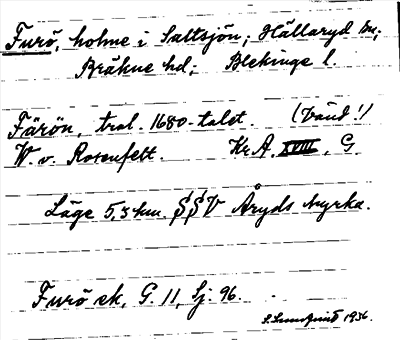 Furö, holme i Saltsjön; Hällaryd sn;
Bräkne hd; Blekinge l.
Färön, trol. 1680-talet. (Vänd!)
W. v. Rosenfelt. Kr.A. XVIII, G
Läge 5,5 km. SSV Åryds kyrka.
Furö ek, G. 11, Sj. 96.
S. Lundquist 1936.